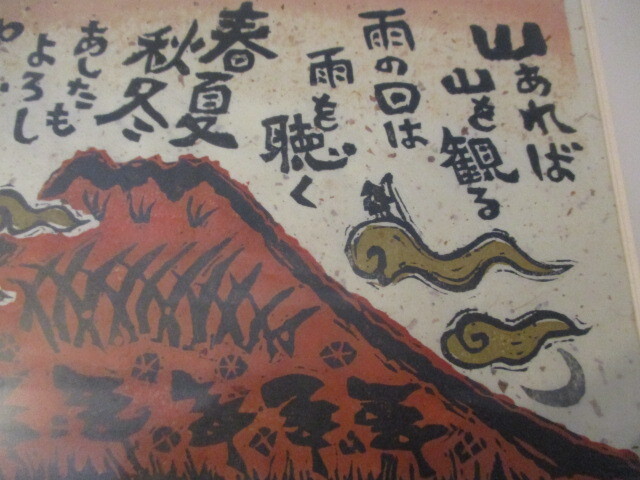 山あれば
山を観る
雨の日は
雨を聴く
春夏
秋冬
あしたも
よろし